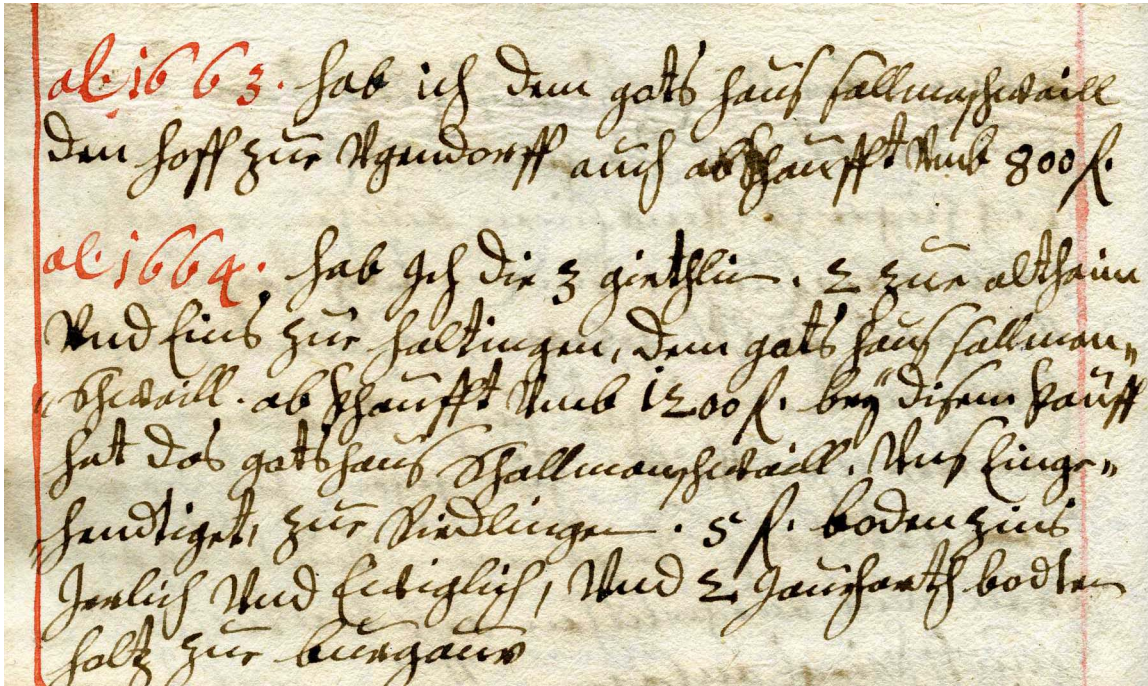 al. 1663. hab ich dem gots haus sallmaschwaill
den hoff zur Ugendorff auch abkhaufft Umb 800 f.
al. 1664. hab Jch die 3 giethlin. 2 zur altheim
Und Eins zur haltingen, dem gots haus sallman„
„Schwaill. ab khaufft Umb 1200 f. bey disem kauff
hat das gotshaus Sallmanschwaill. Uns Einge„
„hendtiget, zur Riedlingen. 5 f. boden zins
Jerlich Und Ewiglich, Und 2 Jaucharth boden
holtz zur burgauw